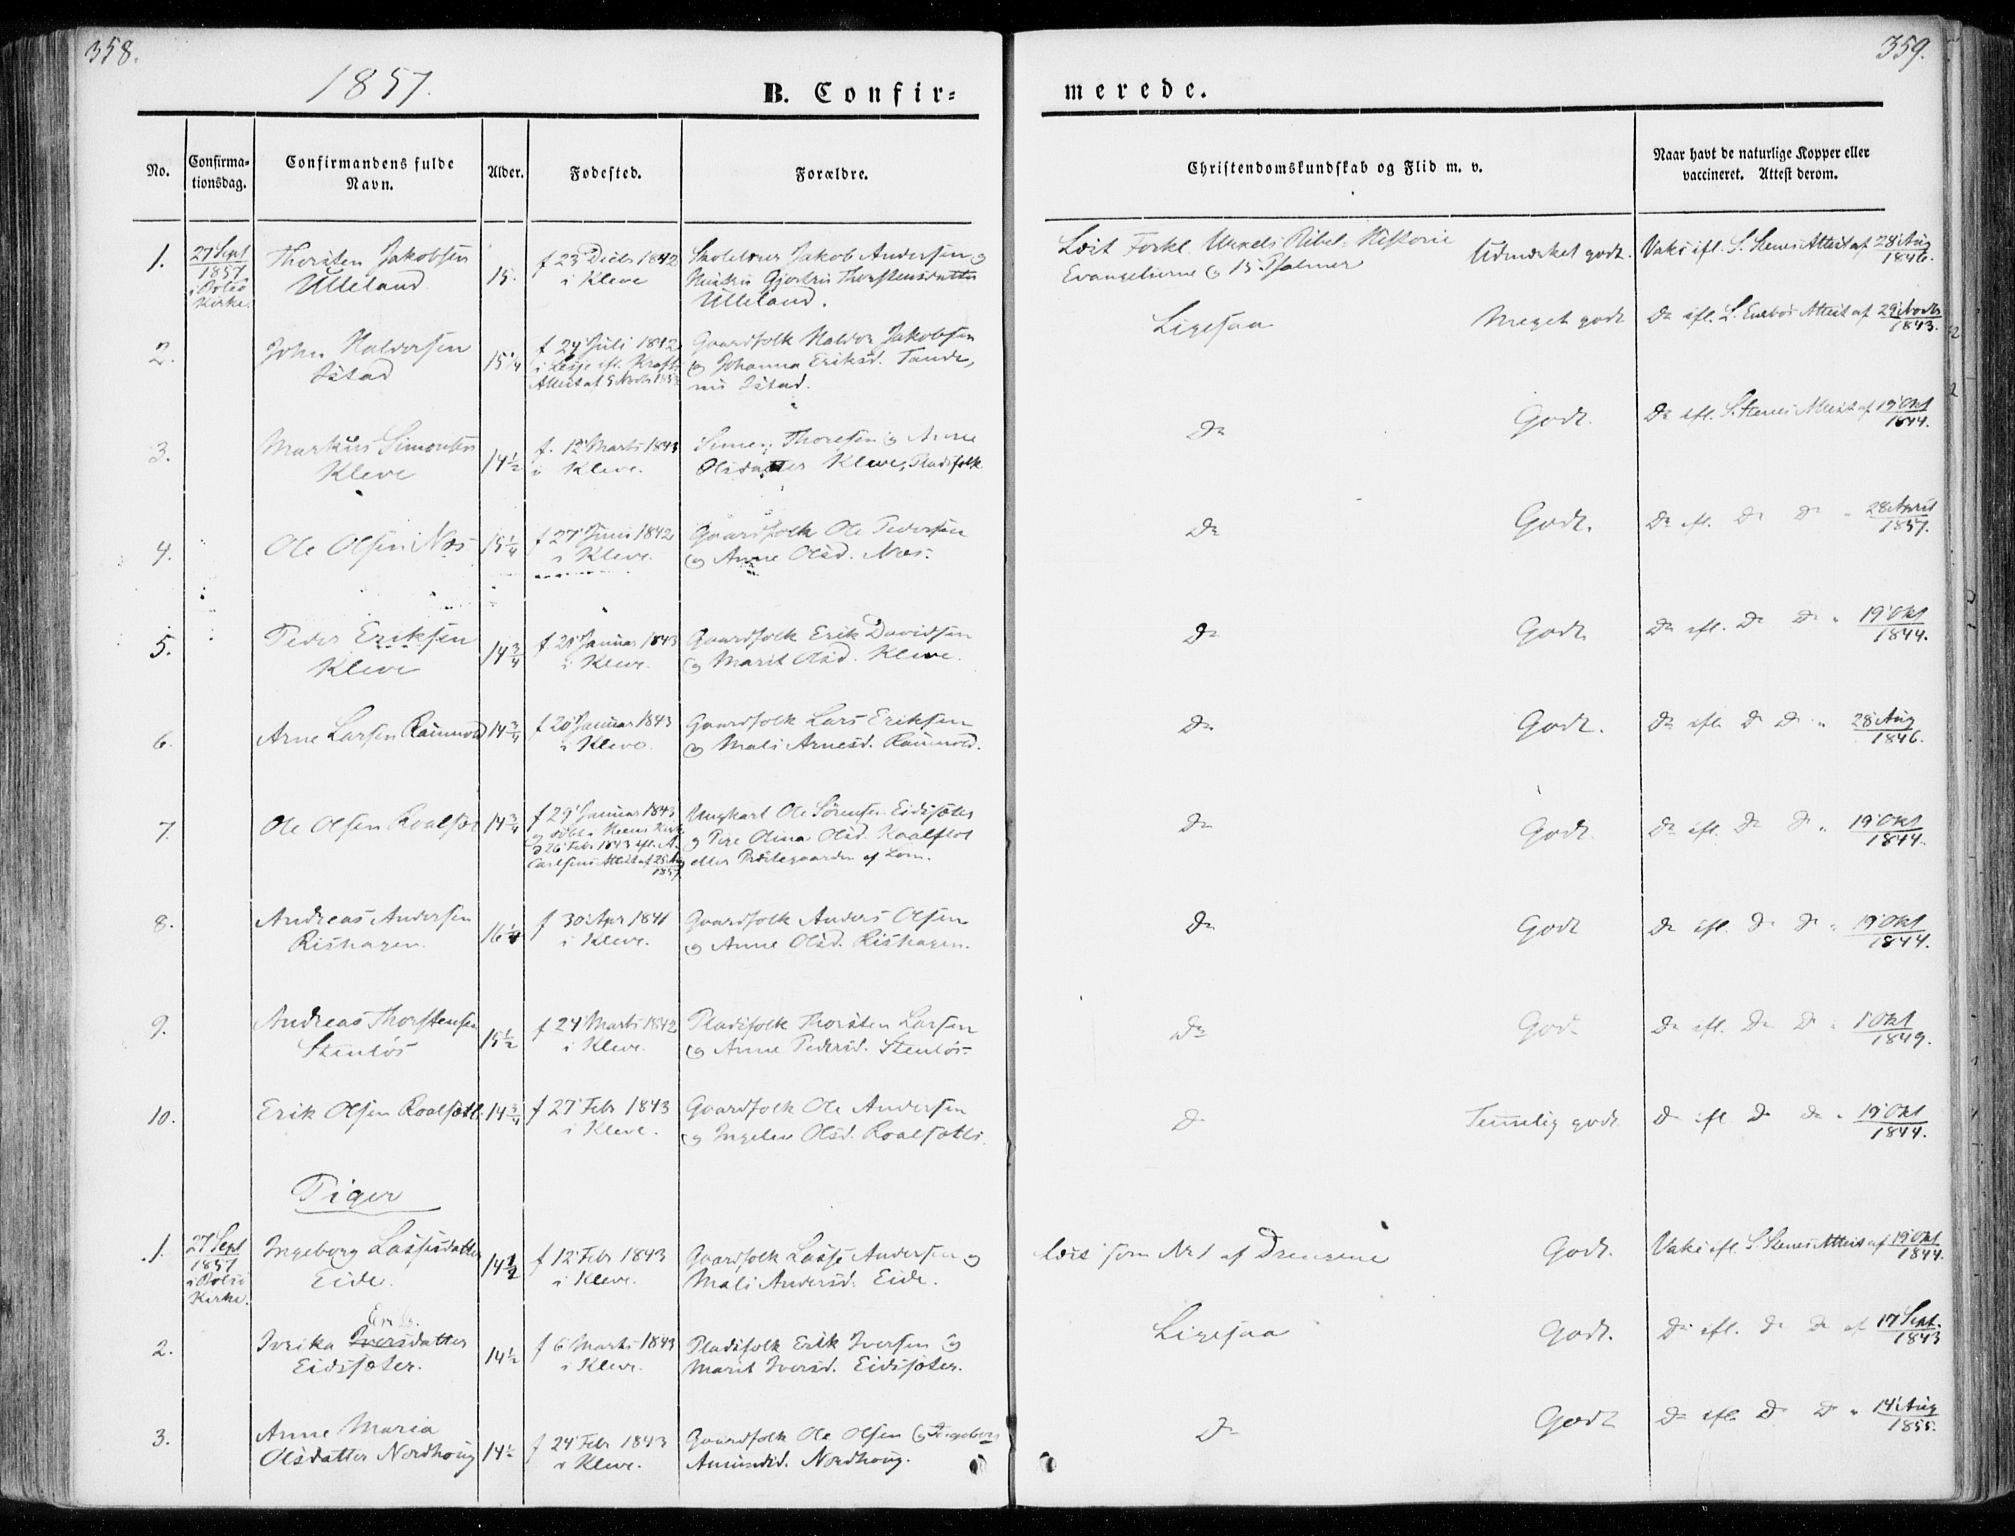 358.
359.
1857.
B. Confir=
merede.
No.
Confirma-
tionsdag.
Confirmandens fulde
Navn.
Alder.
Fødested.
Forældre.
Christendomskundskab og Flid m. v.
Naar havt de naturlige Kopper eller
vaccineret. Attest derom.
1.
27 Sept
1857
i Bolsø
Kirke.
Thorsten Jakobsen
Ulleland
15.
f 23 Decbr 1842
i Kleve
Jakob Andersen og
Thorstensdatter
Ulleland.
Læst Forkl. Bibel-Historie
Evangelierne og 15 Psalmer
Udmærket godt.
Vaks ifl. S. Stenes Attest af 28 Aug
1846.
2.
John Halvorsen
Istad
15 1/4
f 24 Juli 1842
i Lesje ifl.
Attest af
Gaardfolk Haldor Jakobsen
og Johanna Eriksd. Tande,
nu Istad.
Ligesaa
Meget godt
Do ifl. L. Attest af 29 Novbr
1843.
3.
Markus Simonsen
Kleve
14 1/2
f. 12 Marts 1843
i Kleve.
Simen Thoresen og Anne
Olsdatter Kleve, Pladsfolk
Do
Godt.
Do ifl. S. Stenes Attest af 19 Okt
1844.
4.
Ole Olsen Næs
15 1/4
f 27 Juni 1842
i Kleve.
Gaardfolk Ole Pedersen
og Anne Olsd. Næs.
Do
Godt.
Do ifl. Do Do " 28 April
1857.
5.
Peder Eriksen
Kleve
14 3/4
f. 21 Januar 1843
i Kleve.
Gaardfolk Erik Davidsen
og Marit Olsd. Kleve.
Do
Godt
Do ifl. Do Do " 19 Okt
1844.
6.
Arne Larsen Raumvold
14 3/4
f 20 Januar 1843
i Kleve.
Gaardfolk Lars Eriksen
og Mali Arnesd. Raumvold.
Do
Godt.
Do ifl Do Do " 28 Aug
1846.
7.
Ole Olsen Roalsæt
14 3/4
f 29 Januar 1843
og døbt i Kirke
d 26 Febr 1843 ifl. A.
Carlsens Attest af
1857
Ungkarl Ole Sørensen Eidssæter
og Pige Olina Olsd. Roalsæt
eller Præstegaarden af Lom.
Do
Godt.
Do ifl. Do Do " 19 Okt
1844.
8.
Andreas Andersen
Rishagen.
16 1/4
f 30 Apr 1841
i Kleve.
Gaardfolk Anders Olsen
og Anne Olsd. Rishagen.
Do
Godt
Do ifl. Do Do " 19 Okt
1844.
9.
Andreas Thorstensen
Stenløs
15 1/2
f 24 Marts 1842
i Kleve.
Pladsfolk Thorsten Larsen
og Anne Pedersd. Stenløs.
Do
Godt
Do ifl. Do Do " 1 Okt
1849.
10.
Erik Olsen Roalsætt.
14 3/4
f 27 Febr 1843
i Kleve.
Gaardfolk Ole Andersen
og Ingeleu Olsd. Roalsætt.
Do
Temmelig godt.
Do ifl Do Do " 19 Okt
1844.
Piger
1.
27 Sept
1857
i Bolsø
Kirke.
Ingeborg Lassesdatter
Eide.
14 1/2
f 12 Febr 1843
i Kleve.
Gaardfolk Lasse Andersen og
Mali Andersd. Eide.
læst som Nr 1 af Drengene
Godt.
Vaks ifl. S. Stenes Attest af 19 Okt
1844.
2.
Eriks
Ivrika Iversdatter
Eidssæter.
14 1/2
f 6 Marts 1843
i Kleve.
Pladsfolk Erik Iversen og
Marit Iversd. Eidssæter.
Ligesaa
Godt.
Do ifl. Do Do af 17 Sept.
1843
3.
Anne Maria
Olsdatter Nordhoug
14 1/2
f 24 Febr 1843
i Kleve.
Gaardfolk Ole Olsen og Ingeborg
Amundsd. Nordhoug.
Do
Godt
Do ifl. Do Do " 14 Aug
1855.